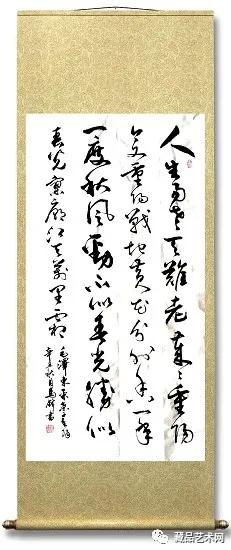 人生易老天難老歲〻重陽
今又重陽戰地黄花分外香一年
一度秋風勁不似春光勝似
春光寥廓江天萬里霜
毛澤東采桑子重陽
辛丑秋月馬書
藏品艺术网